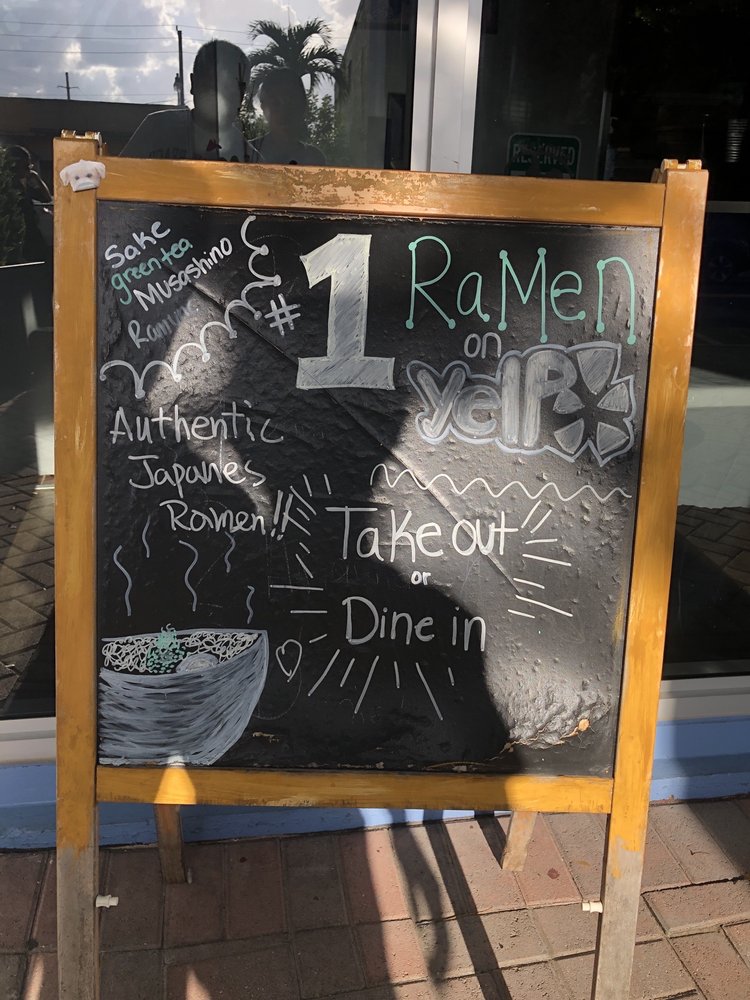 RESERVED
Sake
green tea
Musashino
Ramune
#1 RaMen
on
yelp
Authentic
Japanes
Ramen!!
Take out
or
Dine in